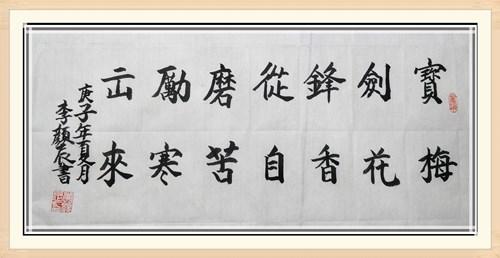 寶劍鋒從磨勵出
梅花香自苦寒來
庚子年夏月
李顏辰書